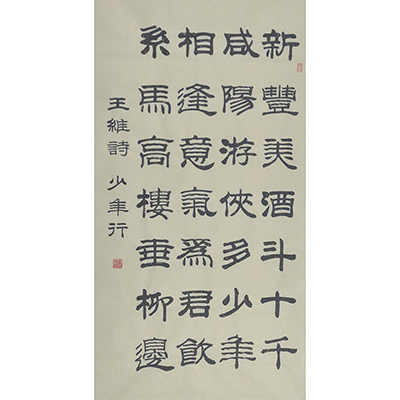 新豐美酒斗十千
咸陽游俠多少年
相逢意氣為君飲
系馬高樓垂柳邊
王維詩 少年行